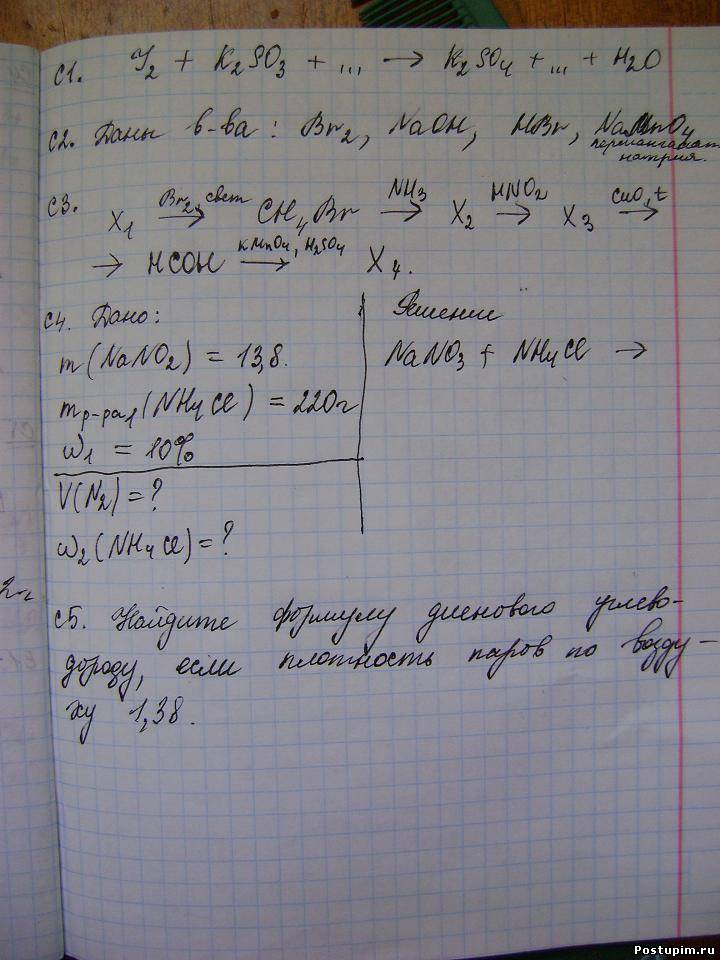 C1. J2 + K2SO3 + ... → K2SO4 + ... + H2O
C2. Даны в-ва: Br2, NaOH, HBr, NaMnO4
перманганат
натрия.
C3. X1 Br2, свет → CH4Br NH3 → X2 HNO2 → X3 CuO, t →
→ HCOH KMnO4, H2SO4 → X4.
C4. Дано:
m(NaNO2) = 13,8.
mр-ра1(NH4Cl) = 220г
ω1 = 10%
V(N2) = ?
ω2(NH4Cl) = ?
Решение
NaNO3 + NH4Cl →
C5. Найдите формулу диенового углево-
дороду, если плотность паров по возду-
ху 1,38.
Postupim.ru